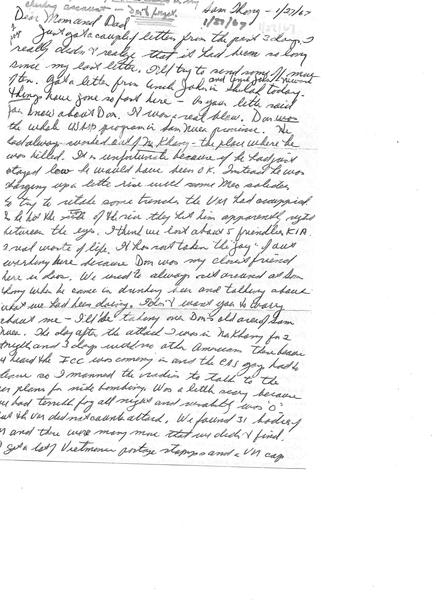 checking account — Don't forget.
Sam Thong - 1/27/67
Dear Mom and Dad 1/27/67
Just got a couple of letters from the past 3 days. I
really didn't realize that it had been so long
since my last letter. I'll try to send some more
often. Got a letter from Uncle John in today.
things have gone so fast here — In your letter said
you knew about Don. It was a real blow. Don was
the whole USAID program in Sam Neua province. He
had always worked out of Na Khang - the place where he
was killed. It is unfortunate because if he had just
stayed low he would have been O.K. Instead he was
charging up a little rise with some Meo soldiers
to try to retake some trenches the VM had occupied
& he hit the of the rise they hit him apparently right
between the eyes. I think we lost about 5 friendlies KIA.
a real waste of life. It has sort taken the joy out
working here because Don was my closest friend
here in Laos. We used to always sit around at Sam
Thong when he came in drinking beer and talking about
what we had been doing. I don't want you to worry
about me — I'll be taking over Don's old area of Sam
Neua. The day after the attack I was in Na Khang for 2
nights and 3 days with no other American there because
we heard the ICC was coming in and the CAS guy had to
leave so I manned the radio to talk to the
planes for night bombing. Was a little scary because
we had terrible fog all night and visibility was 0-
but the VM did not counter attack. We found 31 bodies of
and there were many more that we didn't find.
I got a lot of Vietmenese postage stamps and a VM cap